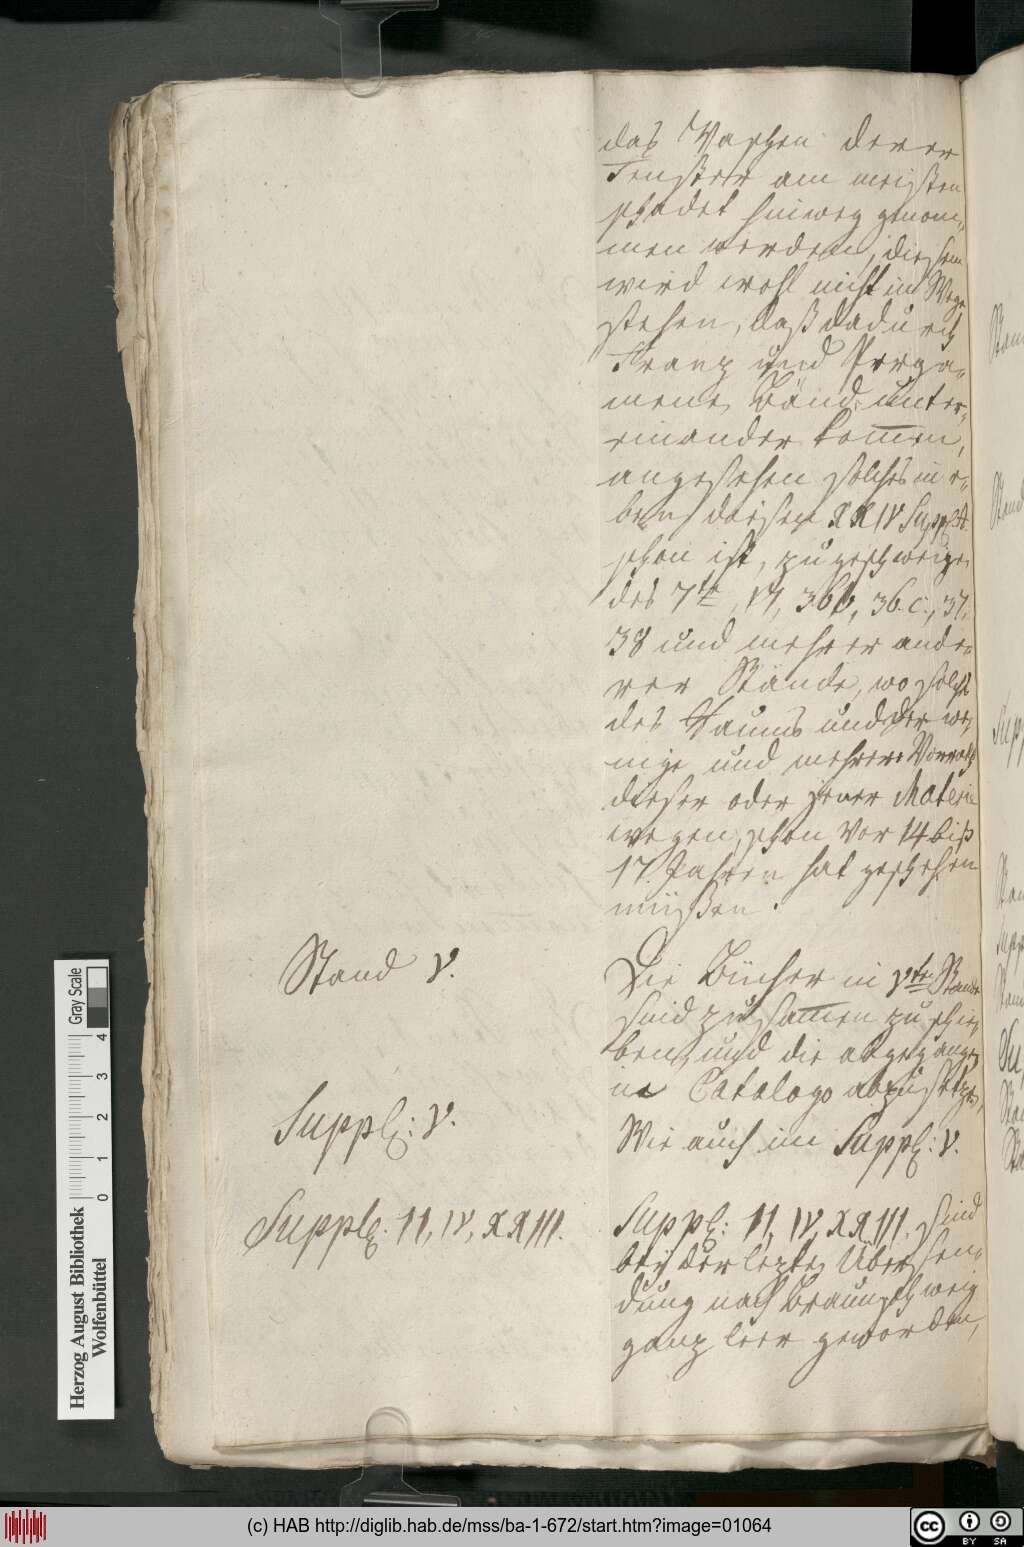 das Waschen derer
Fenster am meisten
schadet hinweg genom-
men werden, diesem
wird wohl nicht im Wege
stehen, daß dadurch
Franz und Perga-
mene Bände unter-
einander kommen,
angesehen solches in e-
ben diesem XXIV Suppl:
schon ist, zu geschweigen
des 7ten, 17, 36b, 36.c., 37,
38 und mehrer ande-
rer Stände, wo solches
des Raums und der we-
nige und mehrere Vorrath
dieser oder jener Materie
wegen, schon vor 14 biß
17. Jahren hat geschehen
müßen.
Stand V.
Die Bücher in Vten Stande
sind zusammen zu schie-
ben, und die abgegangen
in Catalogo abzusetzen,
Suppl: V.
Wie auch im Suppl: V.
Suppl: II, IV, XXIII.
Suppl: II, IV, XXIII. sind
bey der lezten Übersen-
dung nach Braunschweig
ganz leer geworden,
Gray Scale
4
3
2
1
0
Herzog August Bibliothek
Wolfenbüttel
(c) HAB http://diglib.hab.de/mss/ba-1-672/start.htm?image=01064
cc
BY SA